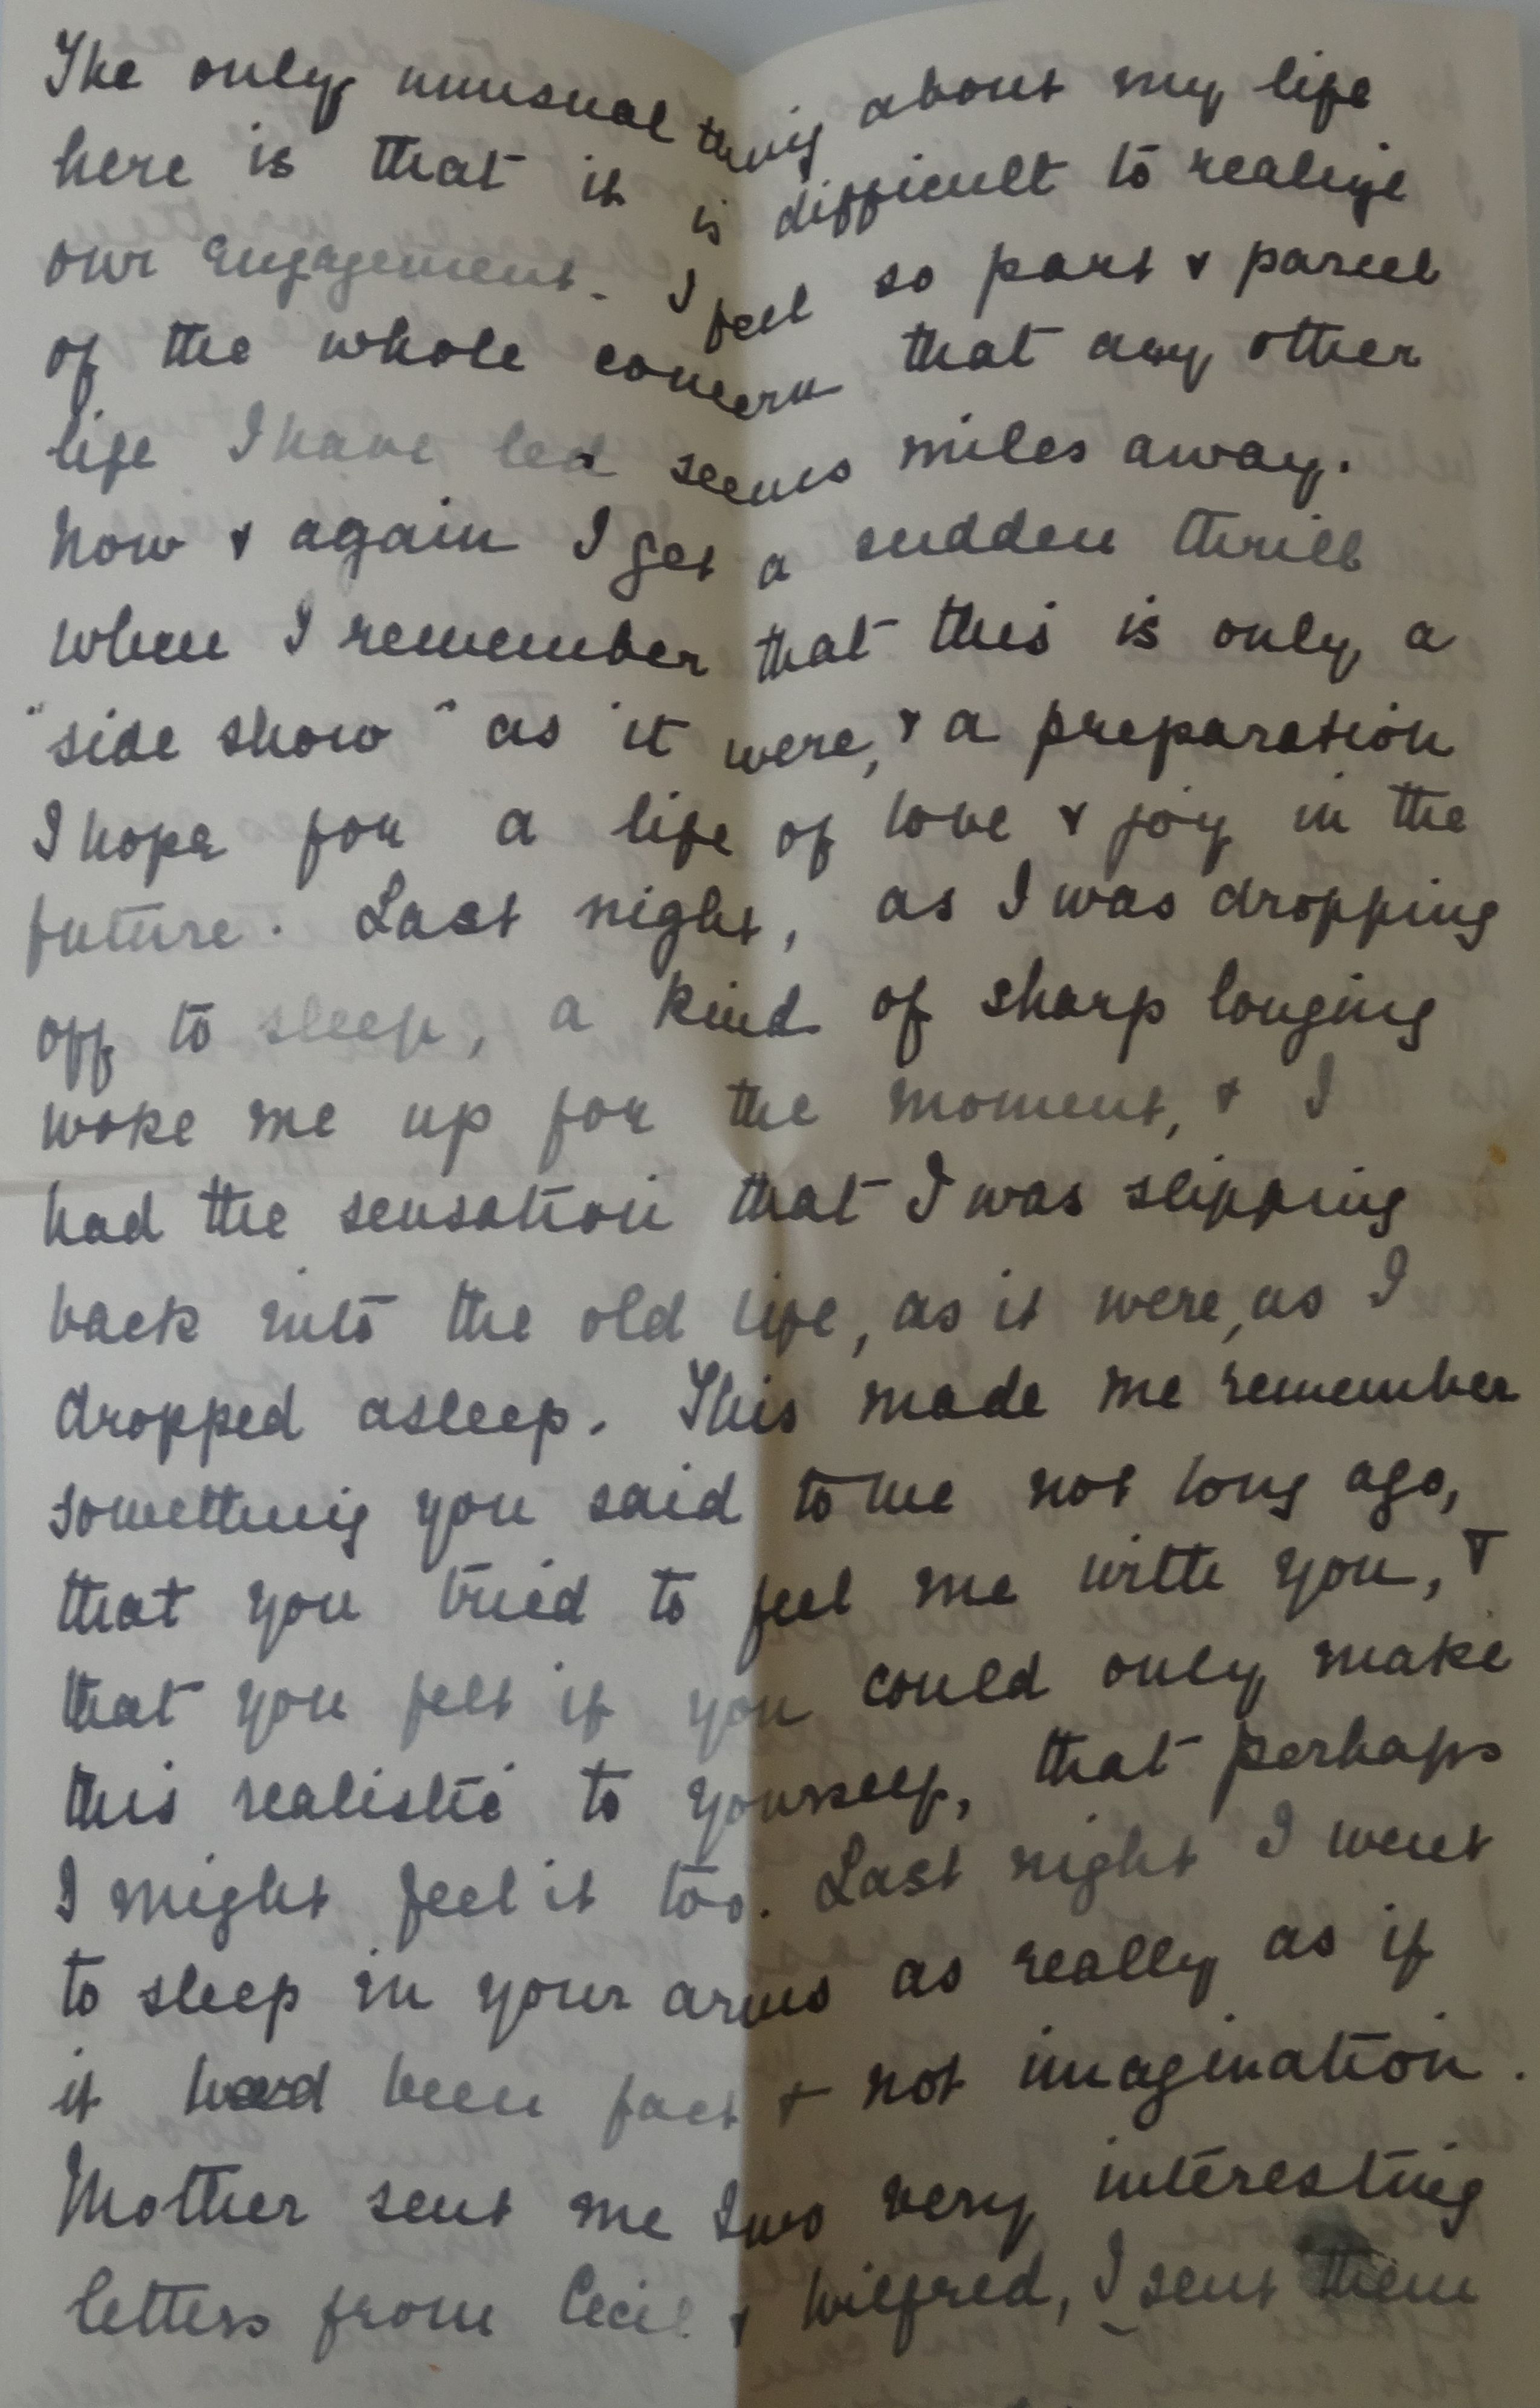 The only unusual thing about my life
here is that it is difficult to realize
our engagement. I feel so part & parcel
of the whole concern that any other
life I have led seems miles away.
Now & again I get a sudden thrill
when I remember that this is only a
"side show" as it were, & a preparation
I hope for a life of love & joy in the
future. Last night, as I was dropping
off to sleep, a kind of sharp longing
woke me up for the moment, & I
had the sensation that I was slipping
back into the old life, as it were, as I
dropped asleep. This made me remember
something you said to me not long ago,
that you tried to feel me with you, &
that you felt if you could only make
this realistic to yourself, that perhaps
I might feel it too. Last night I went
to sleep in your arms as really as if
it had been fact & not imagination.
Mother sent me two very interesting
letters from Cecil & Wilfred, I sent them